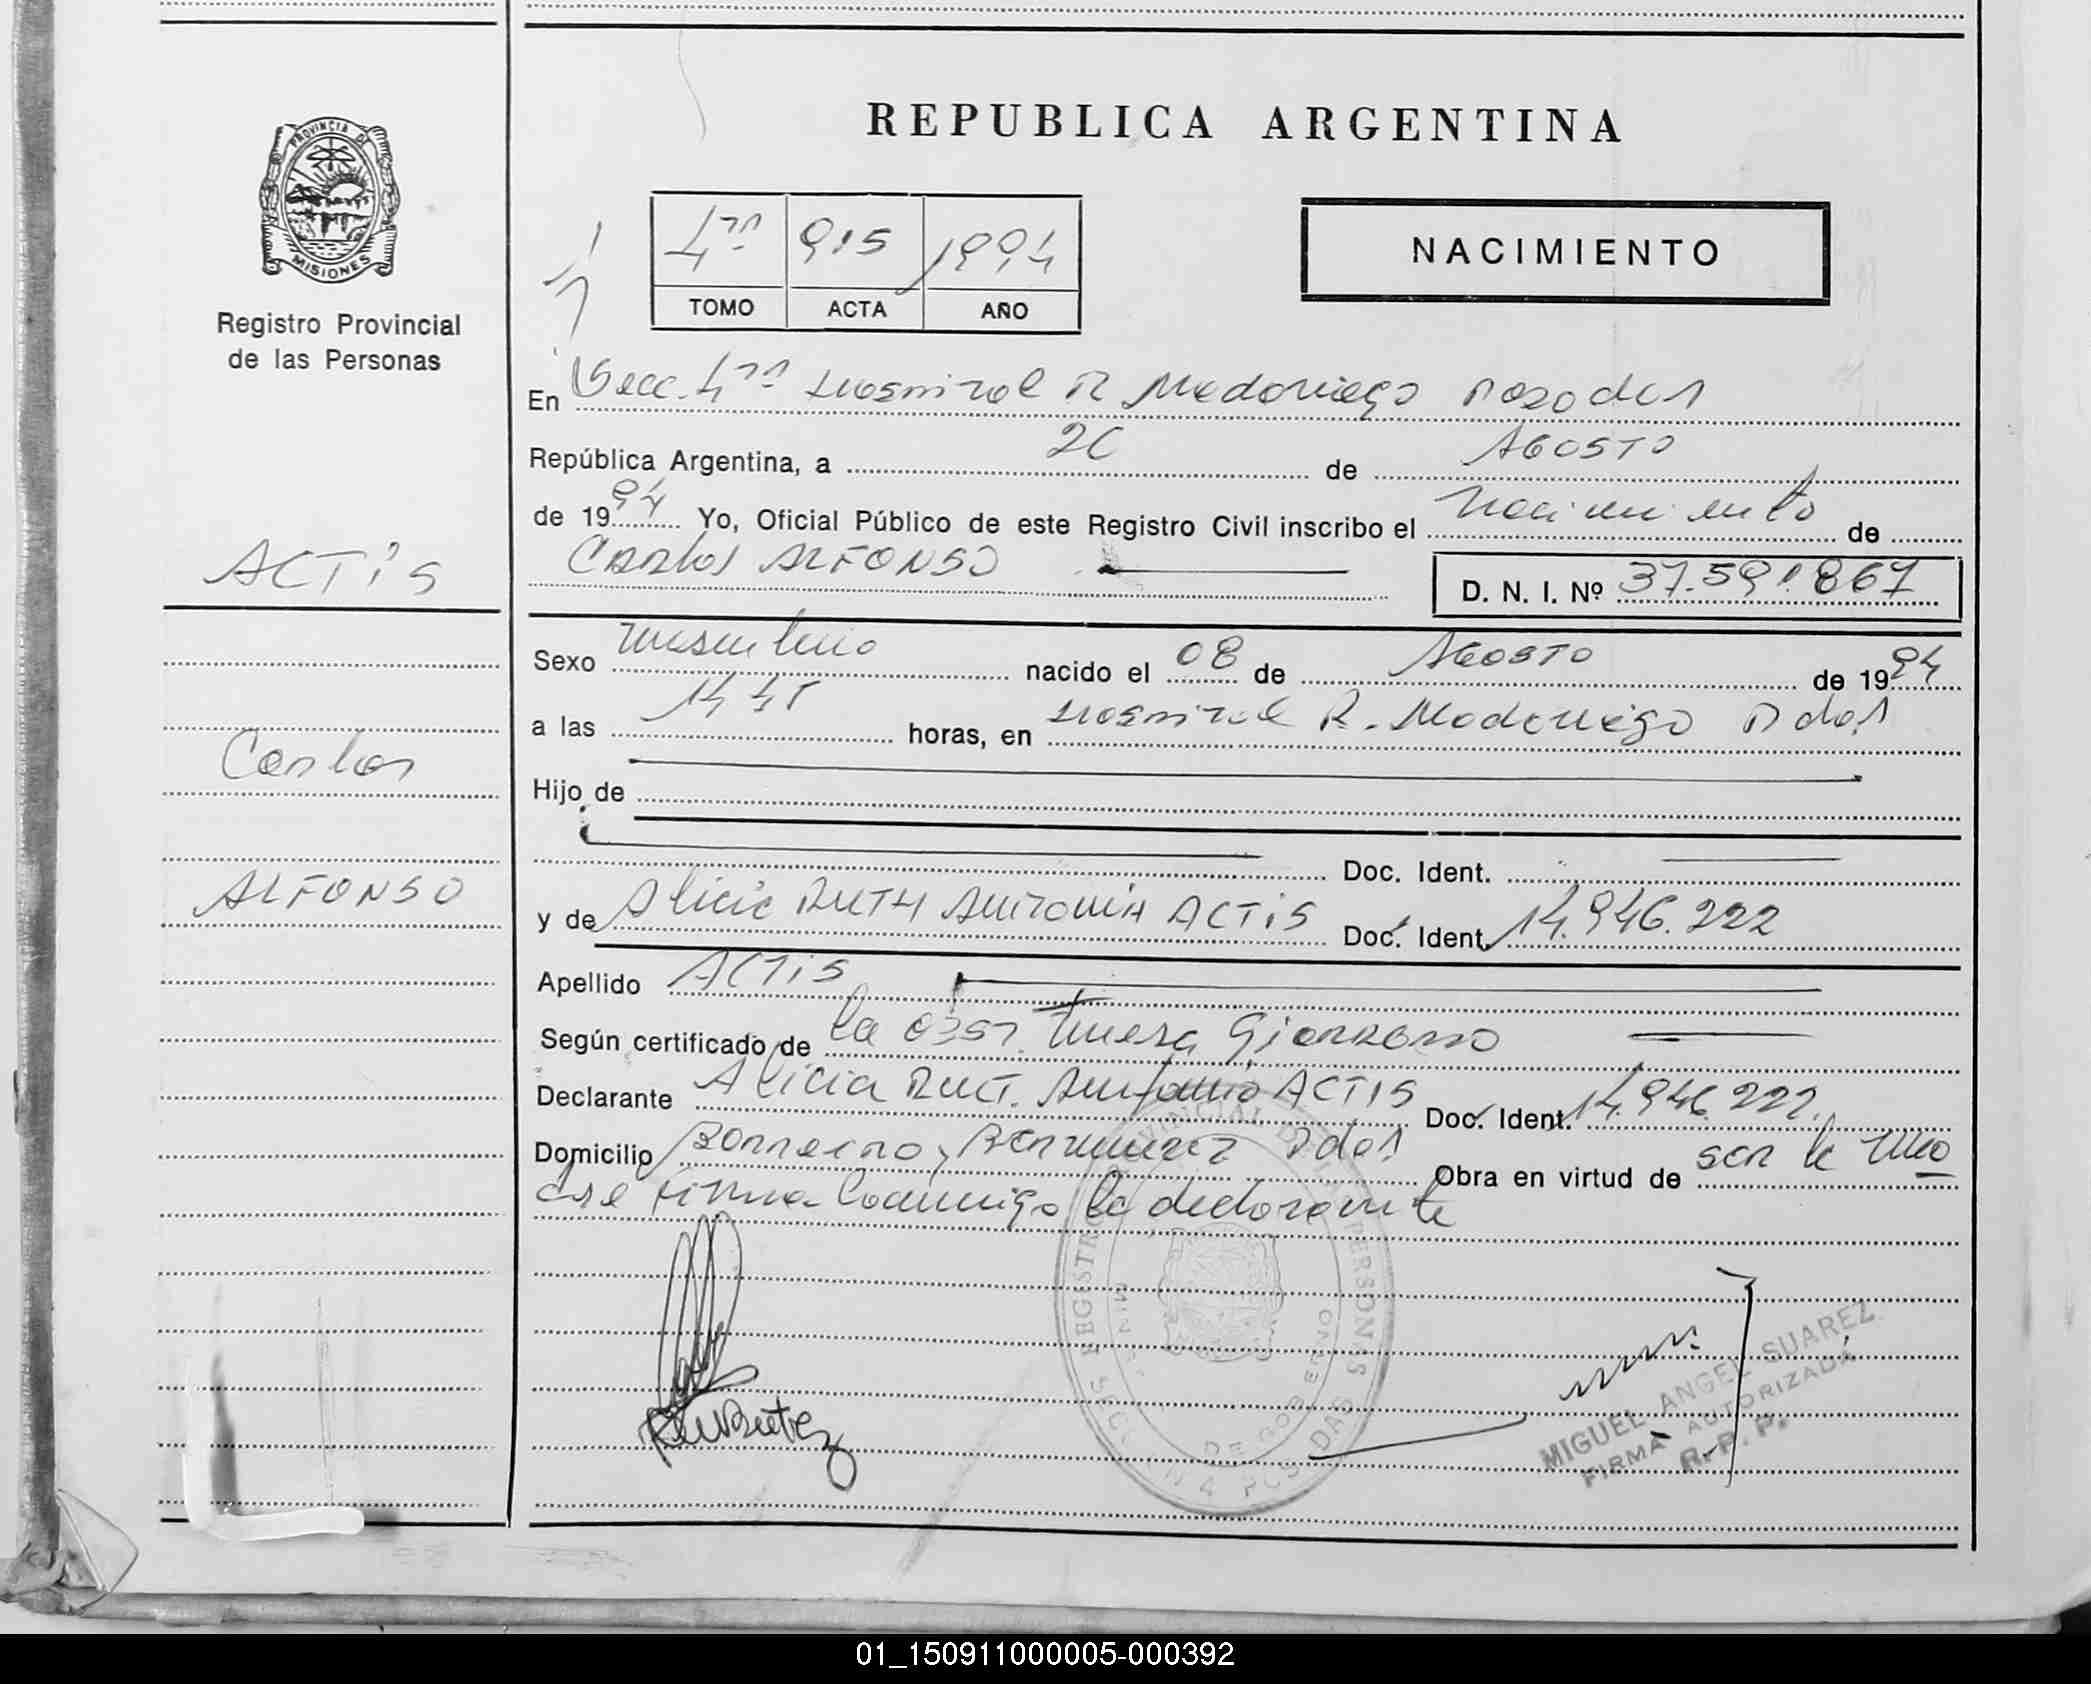 PROVINCIA DE
MISIONES
Registro Provincial
de las Personas
ACTIS
Carlos
ALFONSO
REPUBLICA ARGENTINA
4ta 915 1994
TOMO ACTA AÑO
NACIMIENTO
En Secc. 4ta Hospital R Madariaga Posadas
República Argentina, a 20 de AGOSTO
de 1994 Yo, Oficial Público de este Registro Civil inscribo el Nacimiento de
Carlos ALFONSO D. N. I. Nº 37.591.867
Sexo masculino nacido el 08 de AGOSTO de 1994
a las 14 45 horas, en Hospital R. Madariaga Pdas
Hijo de
Doc. Ident.
y de Alicia RUTH Antonia ACTIS Doc. Ident. 14.946.222
Apellido ACTIS
Según certificado de la obst. Teresa
Declarante Alicia Rut. Antonia ACTIS Doc. Ident. 14.946.222.
Domicilio y Pdas Obra en virtud de ser la ma
dre firma Conmigo la declarante
REGISTRO PROVINCIAL DE LAS PERSONAS
MINIST. DE GOBIERNO
SECCION 4 POSADAS
MIGUEL ANGEL SUAREZ
FIRMA AUTORIZADA
R. P. P.
01_150911000005-000392